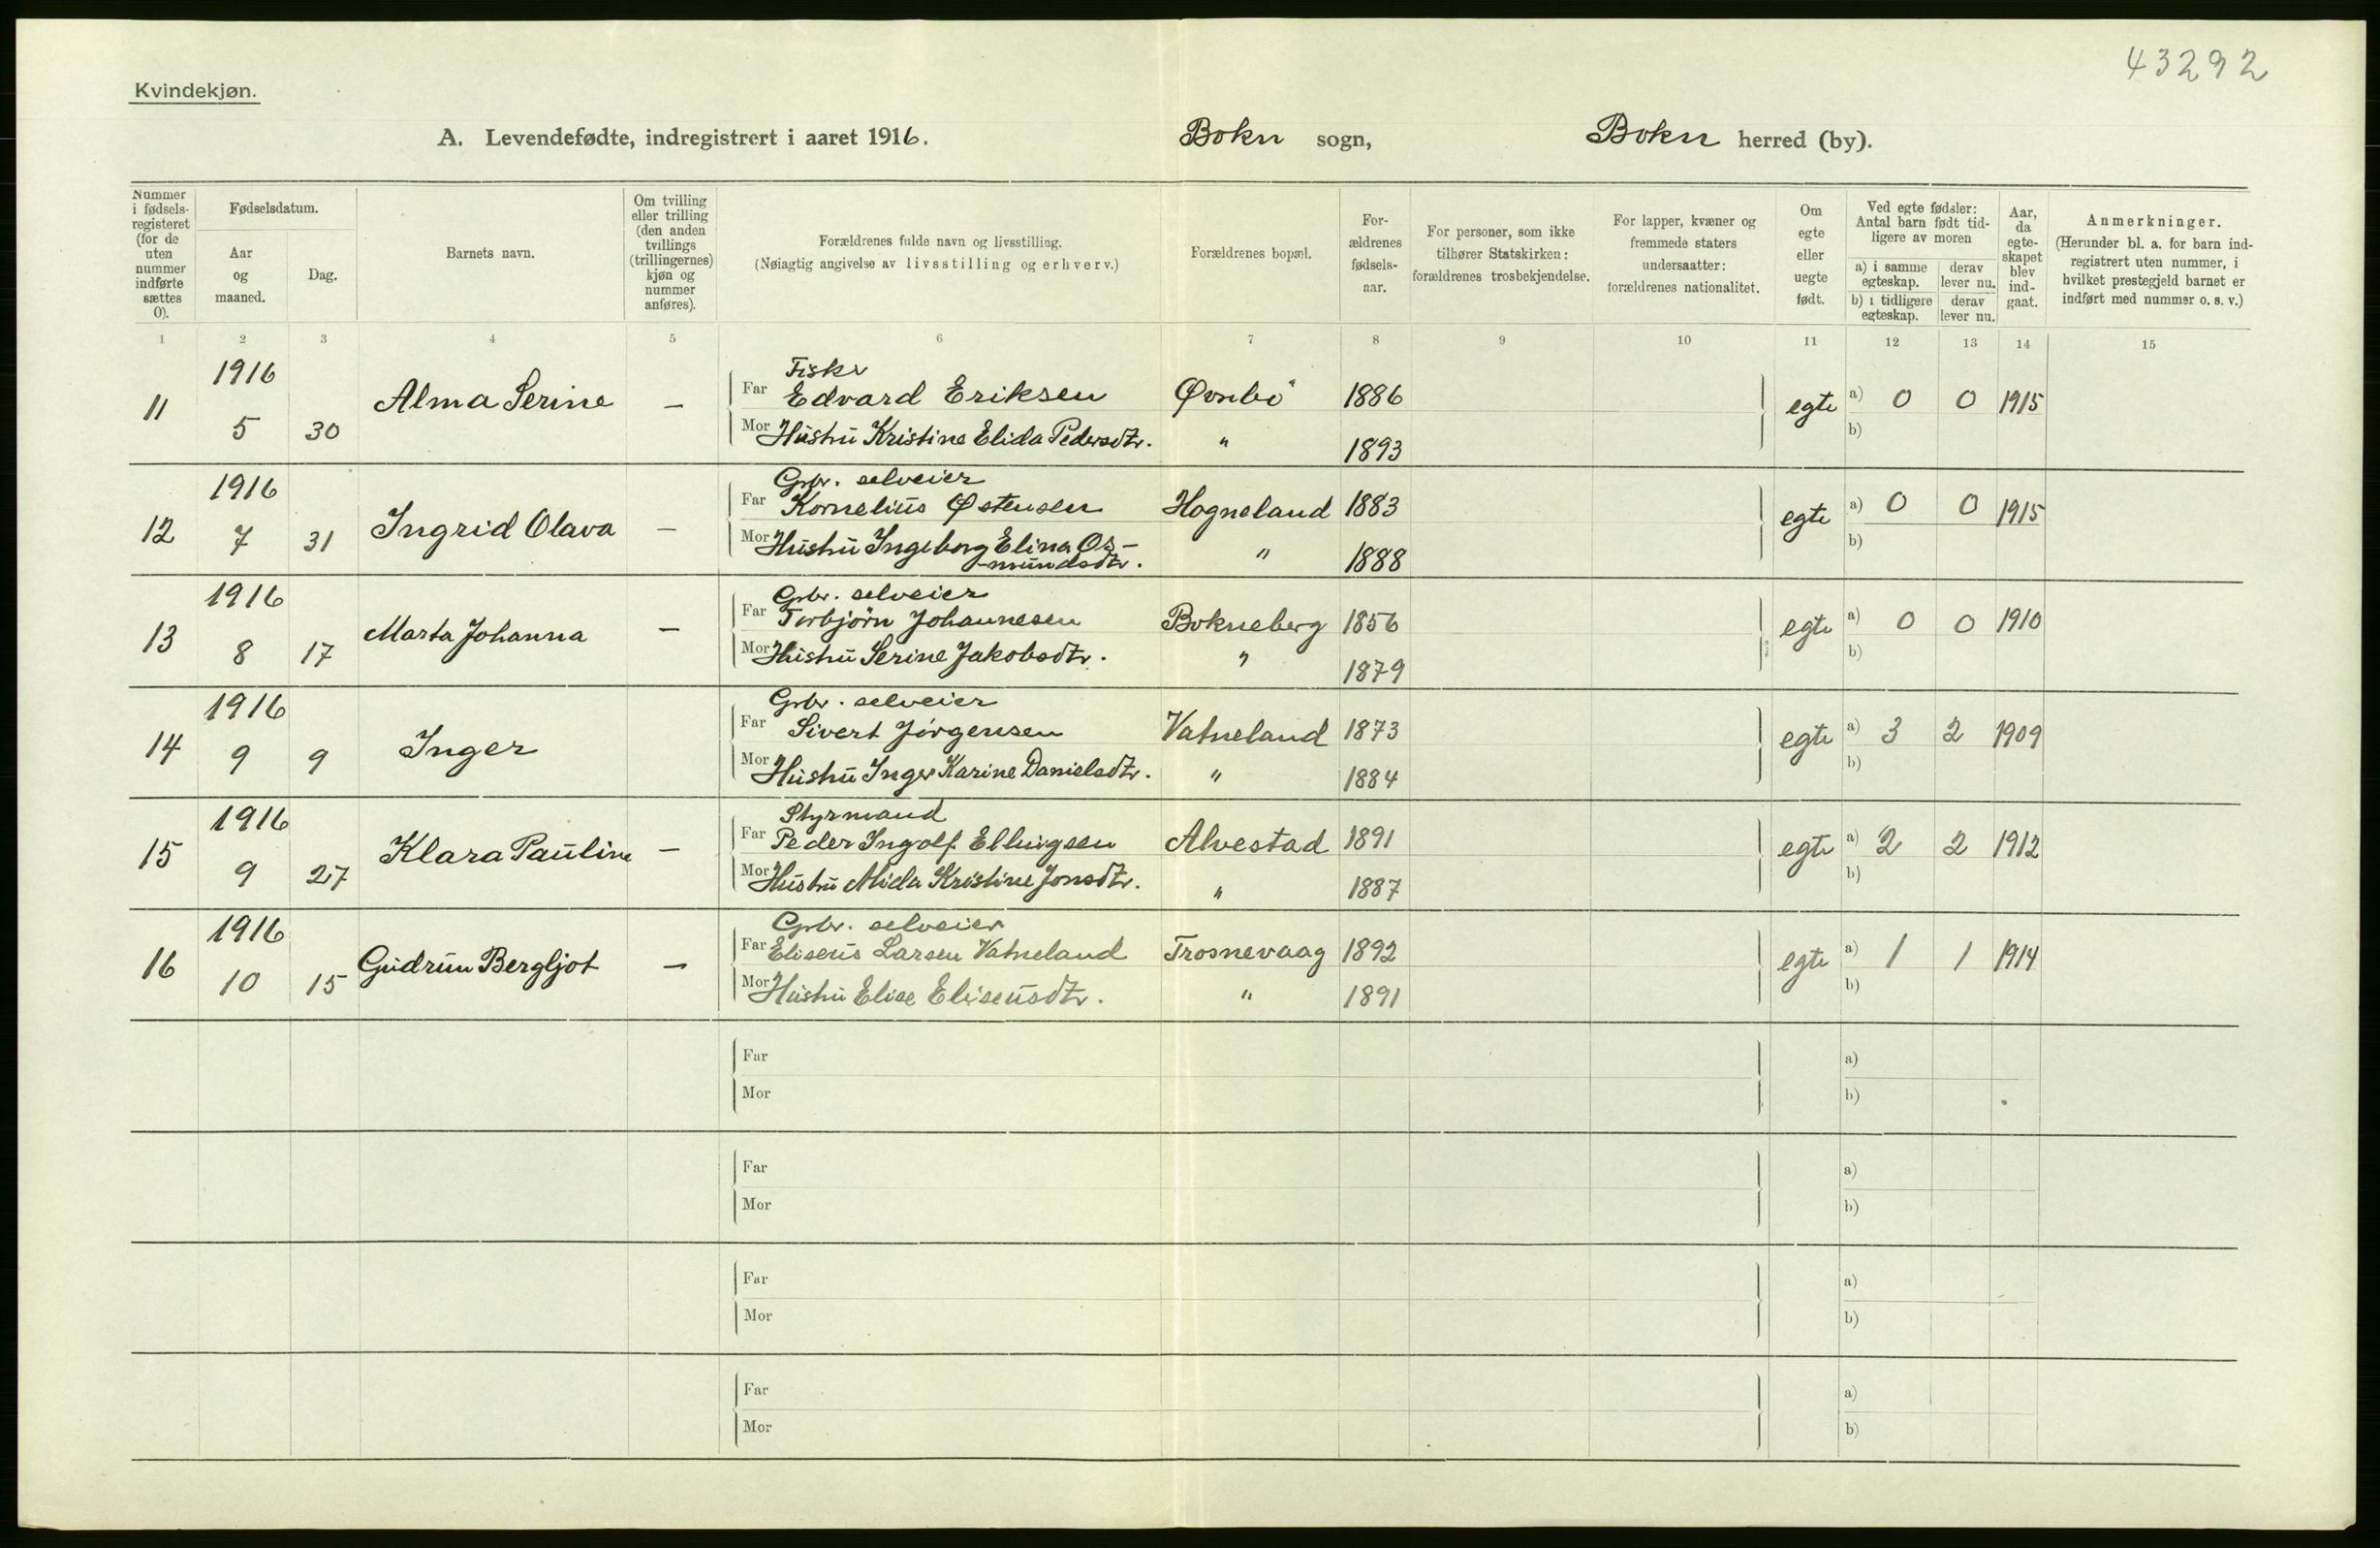 43292
Kvindekjøn.
A. Levendefødte, indregistrert i aaret 1916. Bokn sogn, Bokn herred (by).
Nummer i fødsels-registeret (for de uten nummer indførte sættes 0).
Fødselsdatum.
Aar og maaned.
Dag.
Barnets navn.
Om tvilling eller trilling (den anden tvillings (trillingernes) kjøn og nummer anføres).
Forældrenes fulde navn og livsstilling.
(Nøiagtig angivelse av livsstilling og erhverv.)
Forældrenes bopæl.
For-ældrenes fødsels-aar.
For personer, som ikke tilhører Statskirken: forældrenes trosbekjendelse.
For lapper, kvæner og fremmede staters undersaatter: forældrenes nationalitet.
Om egte eller uegte født.
Ved egte fødsler: Antal barn født tid-ligere av moren
a) i samme egteskap.
derav lever nu.
b) i tidligere egteskap.
derav lever nu.
Aar, da egte-skapet blev ind-gaat.
Anmerkninger.
(Herunder bl. a. for barn ind-registrert uten nummer, i hvilket prestegjeld barnet er indført med nummer o. s. v.)
1 2 3 4 5 6 7 8 9 10 11 12 13 14 15
1916 Fisker
11 Alma Serine – Far Edvard Eriksen 1886 egte a) 0 0 1915
5 30 Mor Hustru Kristine Elida Pedersdtr. " 1893 b)
1916 Gbr. selveier
12 Ingrid Olava – Far Kornelius Østensen Hogneland 1883 egte a) 0 0 1915
7 31 Mor Hustru Ingeborg Elina Os-
-mundsdtr. " 1888 b)
1916 Gbr. selveier
13 Marta Johanna – Far Torbjörn Johannesen Bokneberg 1856 egte a) 0 0 1910
8 17 Mor Hustru Serine Jakobsdtr. " 1879 b)
1916 Gbr. selveier
14 Inger Far Sivert Jörgensen Vatneland 1873 egte a) 3 2 1909
9 9 Mor Hustru Inger Karine Danielsdtr. " 1884 b)
1916 Styrmand
15 Klara Pauline – Far Peder Ingolf Ellingsen Alvestad 1891 egte a) 2 2 1912
9 27 Mor Hustru Kristine Jonsdtr. " 1887 b)
1916 Gbr. selveier
16 Gudrun Bergljot – Far Eliseus Larsen Vatneland Trosnevaag 1892 egte a) 1 1 1914
10 15 Mor Hustru Elise Eliseusdtr. " 1891 b)
Far a)
Mor b)
Far a)
Mor b)
Far a)
Mor b)
Far a)
Mor b)